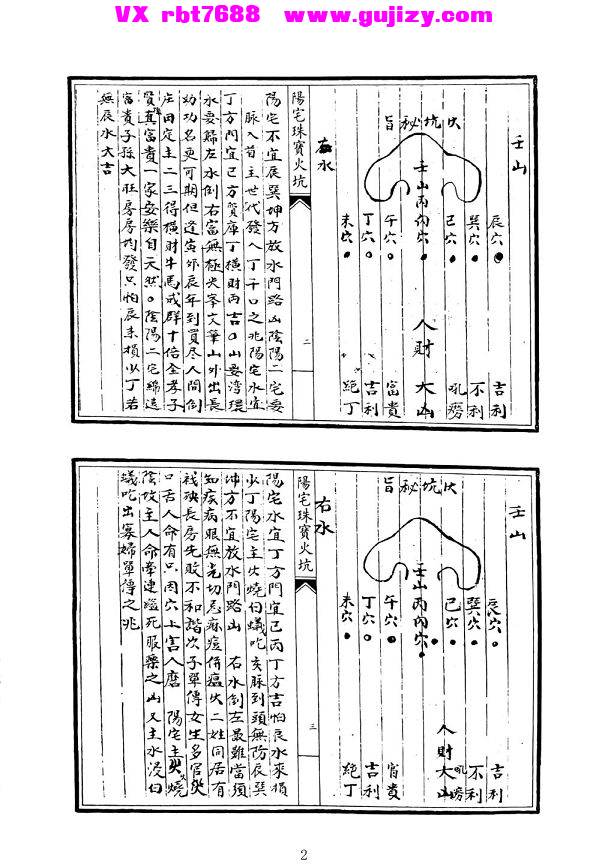 VX rbt7688 www.gujizy.com
壬山
火坑秘旨
壬山丙向穴
辰穴
巽穴
巳穴
午穴
丁穴
未穴
吉利
不利
吼癆
人財大山
富貴
吉利
絶丁
右水
二
陽宅珠寶火坑
陽宅不宜辰巽坤方放水門路凶陰陽二宅要
脉入首主世代發人丁千口之兆陽宅水宜
丁方門宜巳方質庫丁橫財丙吉山要湾環
水要歸左水倒右富無極尖峯文筆山外出長
幼功名更可期但逢寅卯辰年到買尽人間倒
庄田定主二三得橫財牛馬成群十倍全孝子
賢真富貴一家安樂自天然陰陽二宅綿遠
富貴子孫大旺房房均發只怕辰未損少丁若
無辰水大吉
壬山
火坑秘旨
壬山丙向穴
辰穴
巽穴
巳穴
午穴
丁穴
未穴
吉利
不利
吼癆
人財大山
富貴
吉利
絶丁
右水
三
陽宅珠寶火坑
陽宅水宜丁方門宜巳丙丁方吉怕艮水來損
少丁陽宅主火燒白蟻吃亥脉到頭無防辰巽
坤方不宜放水門路凶 右水倒左最難當須
知疾病眼無光切忌痳痘併瘟火二姓同居有
殘殃長房先敗不和諧次子單傳女生多官
只舌人命有只因穴上害人磨 陽宅主 燒
陰坟主人命牽連 死服藥之凶又主水浸白
蟻吃出寡婦單傳之兆
2